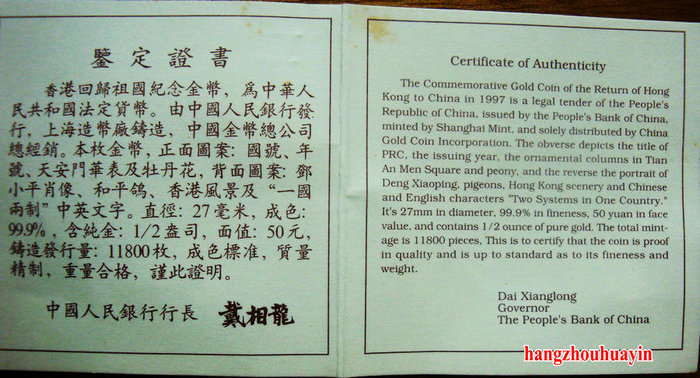 鑒定證書
香港回歸祖國紀念金幣，爲中華人
民共和國法定貨幣。由中國人民銀行發
行，上海造幣廠鑄造，中國金幣總公司
總經銷。本枚金幣，正面圖案：國號、年
號、天安門華表及牡丹花，背面圖案：鄧
小平肖像、和平鴿、香港風景及“一國
兩制”中英文字。直徑：27毫米，成色：
99.9%，含純金：1/2盎司，面值：50元，
鑄造發行量：11800枚，成色標准，質量
精制，重量合格，謹此證明。
中國人民銀行行長 戴相龍
Certificate of Authenticity
The Commemorative Gold Coin of the Return of Hong
Kong to China in 1997 is a legal tender of the People's
Republic of China, issued by the People's Bank of China,
minted by Shanghai Mint, and solely distributed by China
Gold Coin Incorporation. The obverse depicts the title of
PRC, the issuing year, the ornamental columns in Tian
An Men Square and peony, and the reverse the portrait of
Deng Xiaoping, pigeons, Hong Kong scenery and Chinese
and English characters "Two Systems in One Country."
It's 27mm in diameter, 99.9% in fineness, 50 yuan in face
value, and contains 1/2 ounce of pure gold. The total mint-
age is 11800 pieces, This is to certify that the coin is proof
in quality and is up to standard as to its fineness and
weight.
Dai Xianglong
Governor
The People's Bank of China
hangzhouhuayin